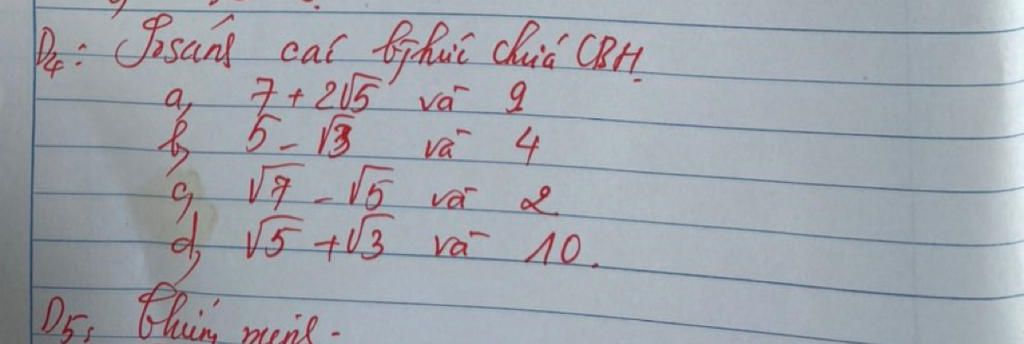 D4: So sánh các bthức chứa CBH.
a, 7 + 2√5 và 9
b, 5 - √3 và 4
c, √7 - √5 và 2
d, √5 + √3 và 10.
D5: Chứng minh.